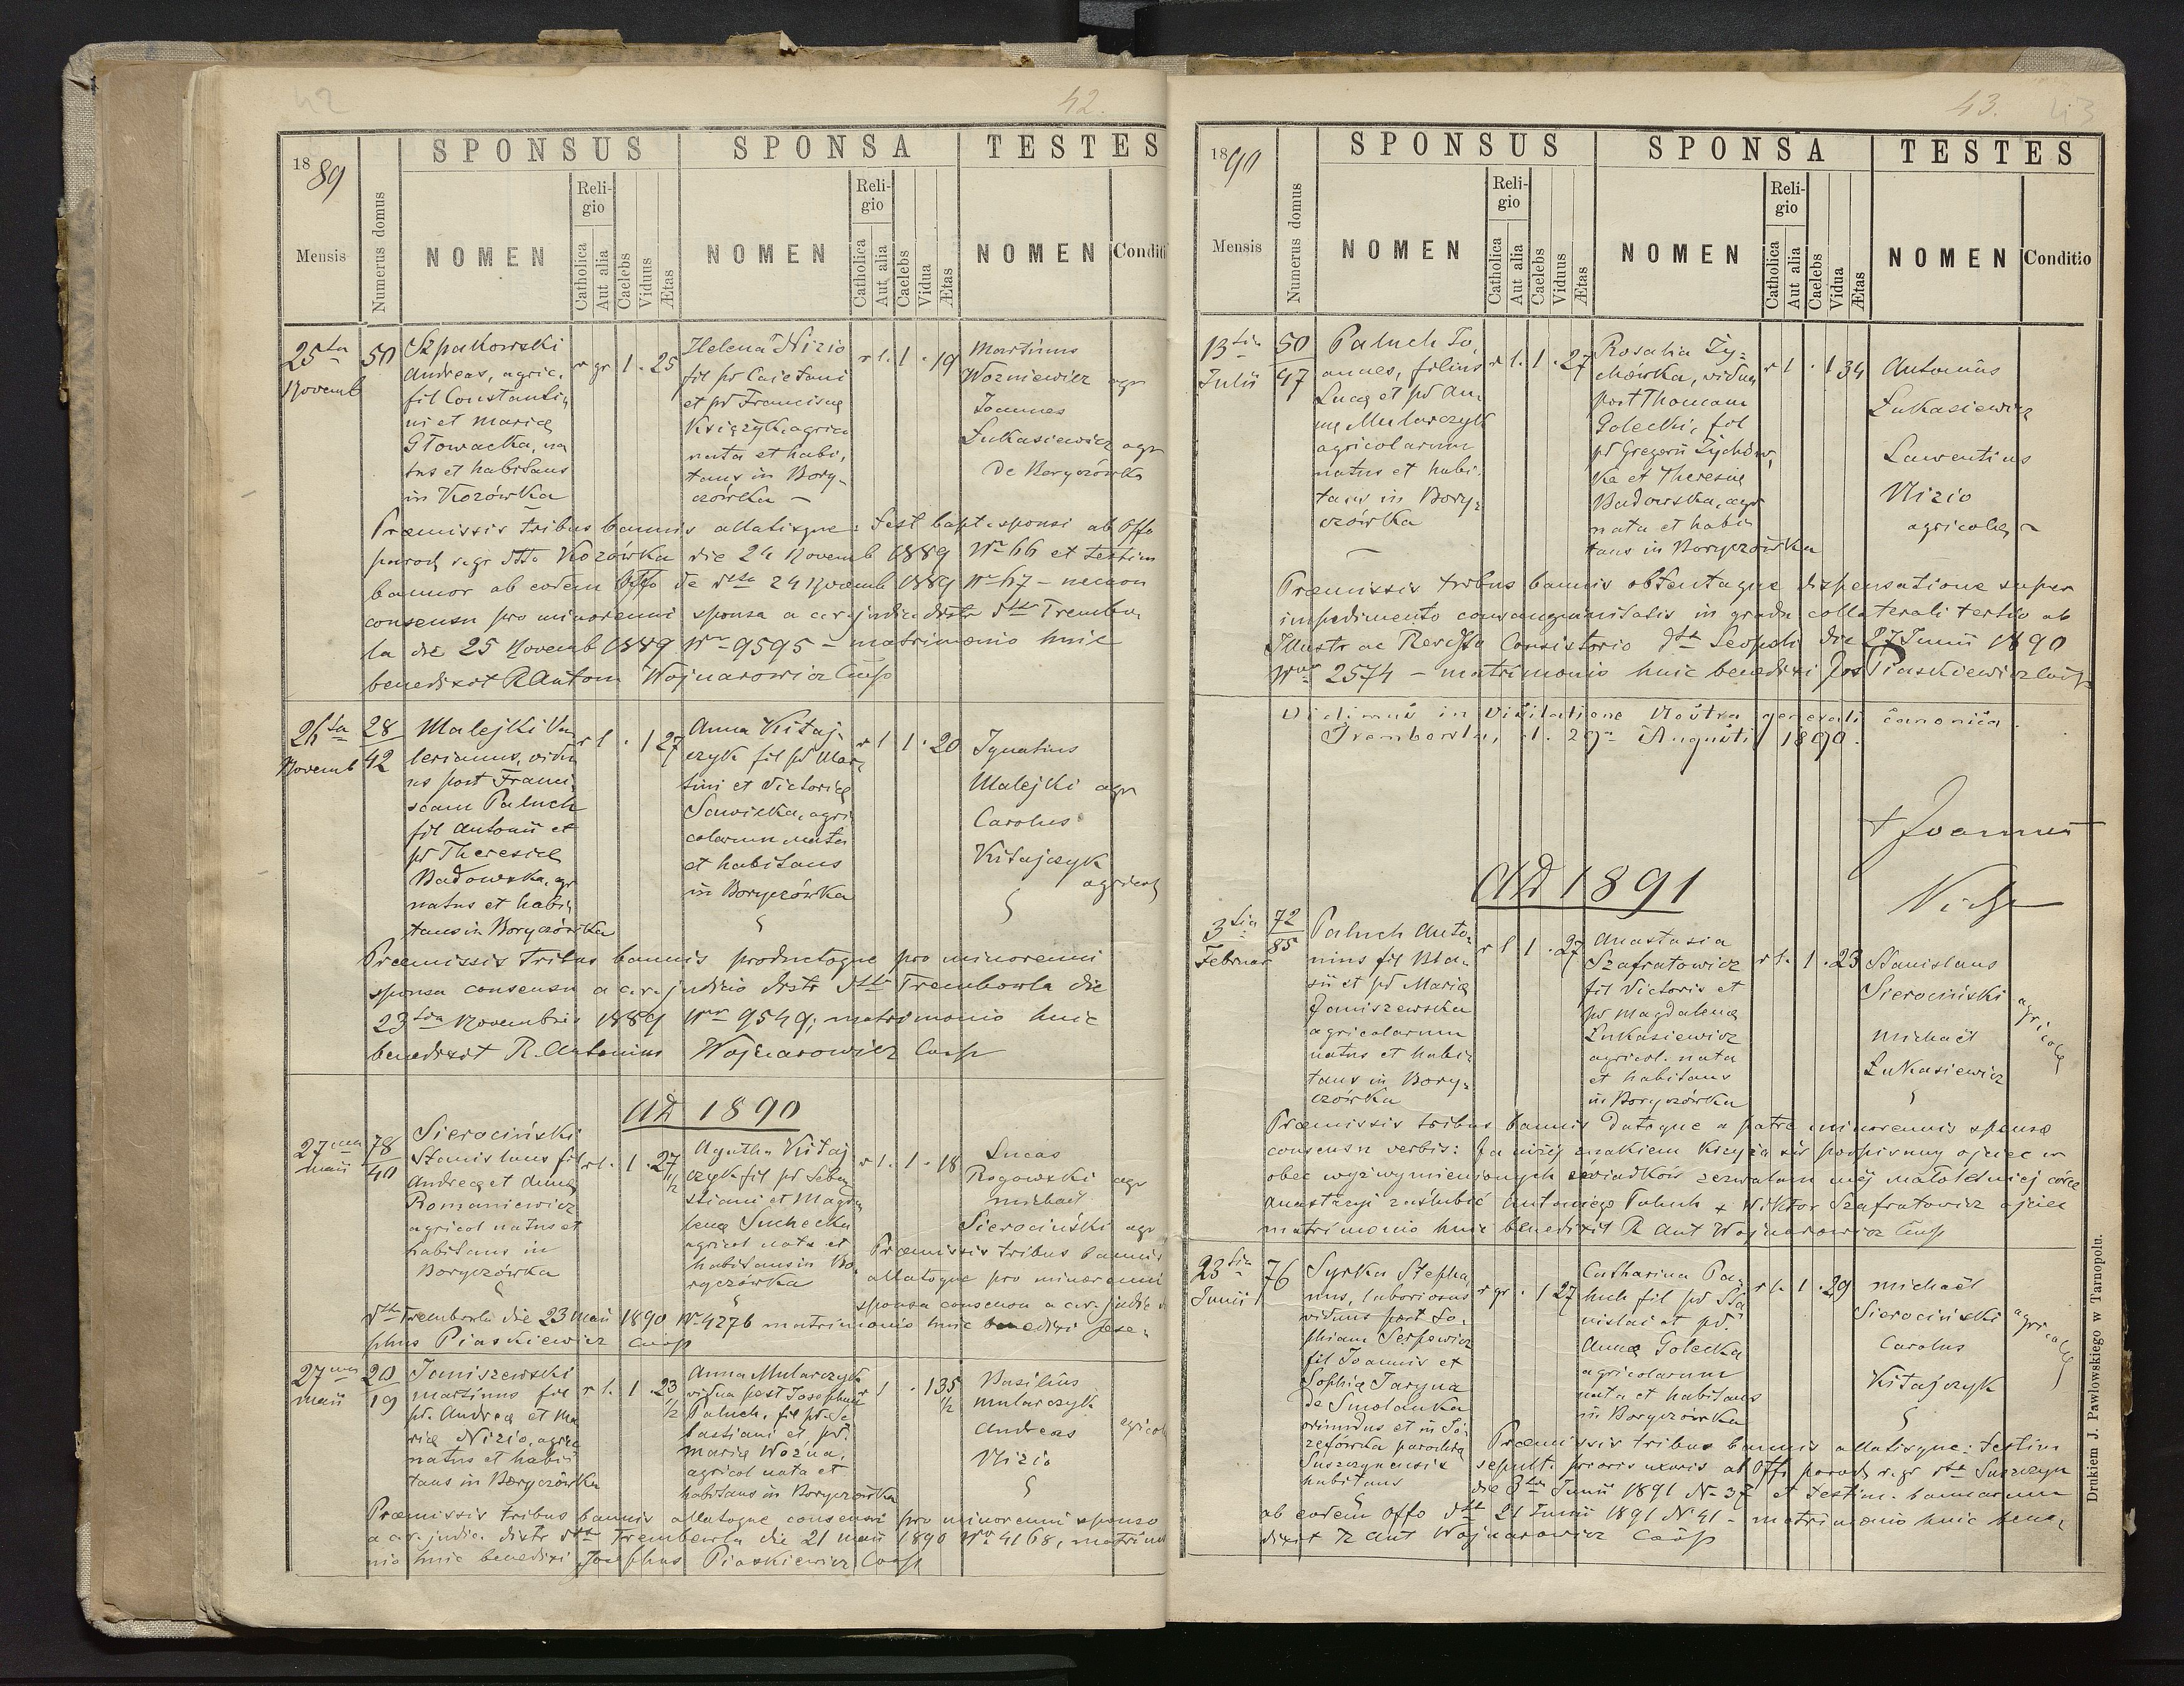 42
42.
1889
SPONSUS
SPONSA
TESTES
Mensis
Numerus domus
NOMEN
Religio
Catholica
Aut alia
Caelebs
Viduus
Ætas
NOMEN
Religio
Catholica
Aut alia
Caelebs
Vidua
Ætas
NOMEN
Conditi
25ta Novemb
50
Szpakowski
Andreas, agric.
fil Constanti,
ni et Mariæ
Głowacka, na
tus et habitans
in Kozówka
r gr 1 . 25
Helena Nizio
fil pd Caietani
et pd Franciscæ
Książyk, agric
nata et habi,
tans in Bory-
czówka
r l. 1 . 19
Martinus
Wozniewicz agr
Joannes
Łukasiewicz agr
de Boryczówka
Præmissis tribus bannis allatisque: test bapt. sponsi ab Offo
paroch r. gr dtto Kozówka die 24 Novemb 1889 Nr 66 et testim
bannor ab eodem Offo de dtto 24 Novemb 1889 Nr 67 – necnon
consensu pro minorenni sponsa a c. r. judic distr dtto Trembo,
la die 25 Novemb 1889 Nr 9595 – matrimonio huic
benedixit R Anton Wojnarowicz Coop
26ta Novemb
28
42
Malejki Va
lerianus, vidu
us post Franci
scam Paluch
fil Antonii et
pd Theresiæ
Badowska, agr
natus et habi,
tans in Boryczówka
r l . 1 27
Anna Kitaj-
czyk fil pd Mar,
tini et Victoriæ
Sawicka, agri
colarum nata
et habitans
in Boryczówka
r l 1 . 20
Ignatius
Malejki agr
Carolus
Kitajczyk
agricol
Præmissis tribus bannis productoque pro minorenni
sponsa consensu a c. r. judicio distr dtto Trembowla die
23tia Novembris 1889 Nro 9549; matrimonio huic
benedixit R. Antonius Wojnarowicz Coop
AD 1890
27ma Maii
78
40
Sierociński
Stanislaus fil
Andreæ et Annæ
Romaniewicz
agricol natus et
habitans in
Boryczówka
r l. 1 . 27 1/2
Agatha Kitaj
czyk fil pd Seba
stiani et Magda
lenæ Suchecka
agricol nata et
habitans in Bo
ryczówka
r l. 1 . 18
Lucas
Rogowski agr
Michael
Sierociński agr
Præmissis tribus bannis
allatoque pro minorenni
sponsa consensu a c. r. judic d
dtto Trembowla die 23 Maii 1890 Nr 4276 matrimonio huic benedixi Jose-
phus Piaskiewicz Coop
27ma Maii
20
19
Janiszewski
Martinus fil
pd. Andreæ et Ma
riæ Nizio, agric
natus et habi
tans in Boryczówka
r l. 1 . 23 1/2
Anna Mularczyk
vidua post Josephum
Paluch, fil pd. Se
bastiani et pd.
Mariæ Woźna,
agricol nata et
habitans in Boryczówka
r l . 1 35 1/2
Basilius
Mularczyk
Andreas
Nizio
agricol
Præmissis tribus bannis allatoque consensu pro minorenni sponso
a c. r. judic. distr dtto Trembowla die 21 Maii 1890 Nro 4168, matrimo
nio huic benedixi Josephus Piaskiewicz Coop
43.
43
1890
SPONSUS
SPONSA
TESTES
Mensis
Numerus domus
NOMEN
Religio
Catholica
Aut alia
Caelebs
Viduus
Ætas
NOMEN
Religio
Catholica
Aut alia
Caelebs
Vidua
Ætas
NOMEN
Conditio
13tia Julii
50
47
Paluch Jo,
annes, filius
Lucæ et pd An
næ Mularczyk
agricolarum
natus et habi-
tans in Bory-
czówka
r l. 1 . 27
Rosalia Zy-
chówka, vidua
post Thomam
Golecki, fil
pd Gregorii Zychów,
ka et Theresiæ
Badowska, agr
nata et habi
tans in Boryczówka
r l . 1 34
Antonius
Łukasiewicz
Laurentius
Nizio
agricolæ
Præmissis tribus bannis obtentaque dispensatione super
impedimento consanguinitatis in gradu collaterali tertio ab
Illustr ac Revdsso Consistorio dtto Leopoli die 27 Junii 1890
Nro 2574 – matrimonio huic benedixi Jos Piaskiewicz Coop
Vidimus in visitatione Nostra generali canonica.
Trembowla, d. 29a Augusti 1890.
+ Joannes
AD 1891
3tia Februar
72
85
Paluch Anto-
nius fil Bla-
sii et pd Mariæ
Janiszewska
agricolarum
natus et habi-
tans in Bory-
czówka
r l. 1 . 27
Anastasia
Szafratowicz
fil Victoris et
pd Magdalenæ
Łukasiewicz
agricol. nata
et habitans
in Boryczówka
r l. 1 . 23
Stanislaus
Sierociński
Michaël
Łukasiewicz
agricolæ
Præmissis tribus bannis datoque a patre minorennis sponsæ
consensu verbis: Ja niżej znakiem krzyża św podpisany ojciec w
obec wyżwymienionych świadków zezwalam mej małoletniej córce
Anastazyi zaślubić Antoniego Paluch + Wiktor Szafratowicz ojciec
matrimonio huic benedixit R Ant Wojnarowicz Coop
23tia Junii
76
Syrka Stepha,
nus, laboriosus
viduus post So-
phiam Serpowicz
fil Joannis et
Sophiæ Taryna
de Smolanka
oriundus et in Jó-
zefówka parochiæ
Suszczynensis
habitans
r gr . 1 27
Catharina Pa-
luch fil pd Sta
nislai et pd.
Annæ Golecka
agricolarum
nata et habitans
in Boryczówka
r l. 1 . 29
Michaël
Sierociński
Carolus
Kitajczyk
agricolæ
Præmissis tribus bannis allatisque: testim
sepult. prioris uxoris ab Offo paroch r. gr dtto Suszczyn
die 8va Junii 1891 N. 37 et testim. bannorum
ab eodem Offo dtto 21 Junii 1891 N 41 – matrimonio huic bene,
dixit R Ant Wojnarowicz Coop
Drukiem J. Pawłowskiego w Tarnopolu.